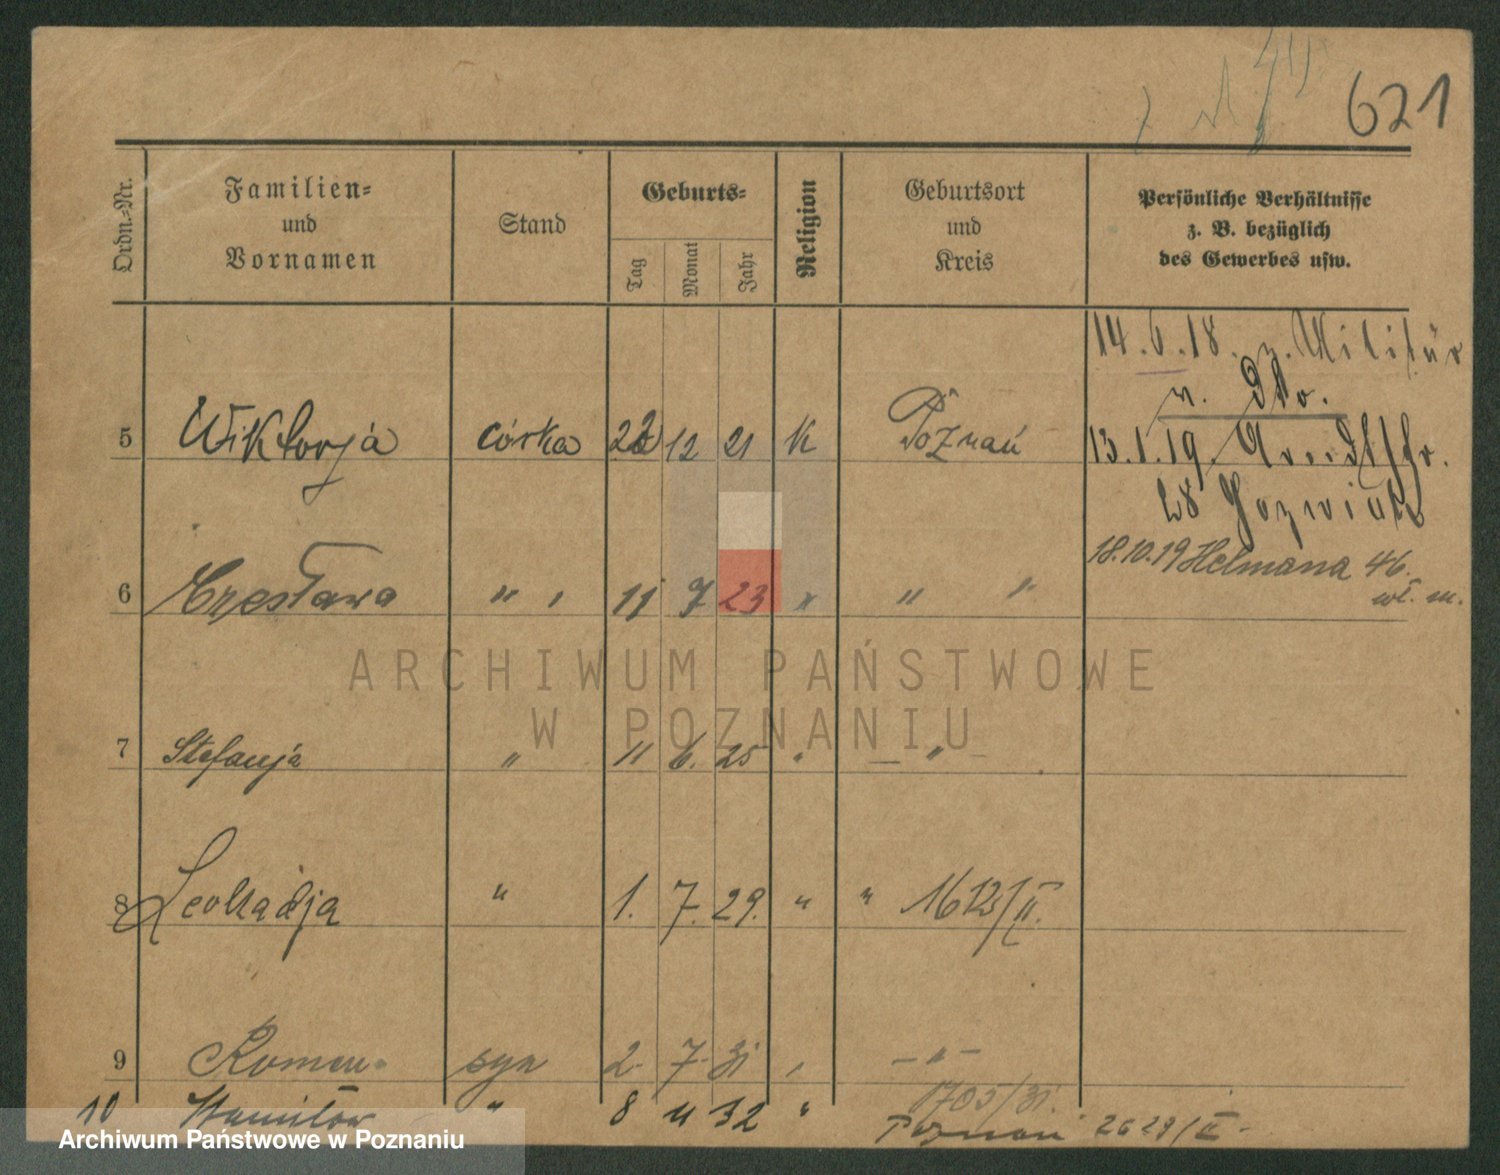 621
Ordn.-Nr.
Familien-
und
Vornamen
Stand
Geburts-
Tag
Monat
Jahr
Religion
Geburtsort
und
Kreis
Persönliche Verhältnisse
z. B. bezüglich
des Gewerbes usw.
14.6.18. z. Militär
v. dto.
5 Wiktorja córka 22 12 21 K Poznań
13.1.19.
28
18.10.19 Helmana 46.
wł. m.
6 Czesława " " 11 7 23 " " "
7 Stefanja " 11 6. 25 " — " —
8 Leokadja " 1. 7. 29. " " 1613/II.
9 Roman syn 2. 7. 31 " — " —
1705/31.
10 Stanisław " 8 11 32 " Poznań 2629/II
ARCHIWUM PAŃSTWOWE
W POZNANIU
Archiwum Państwowe w Poznaniu